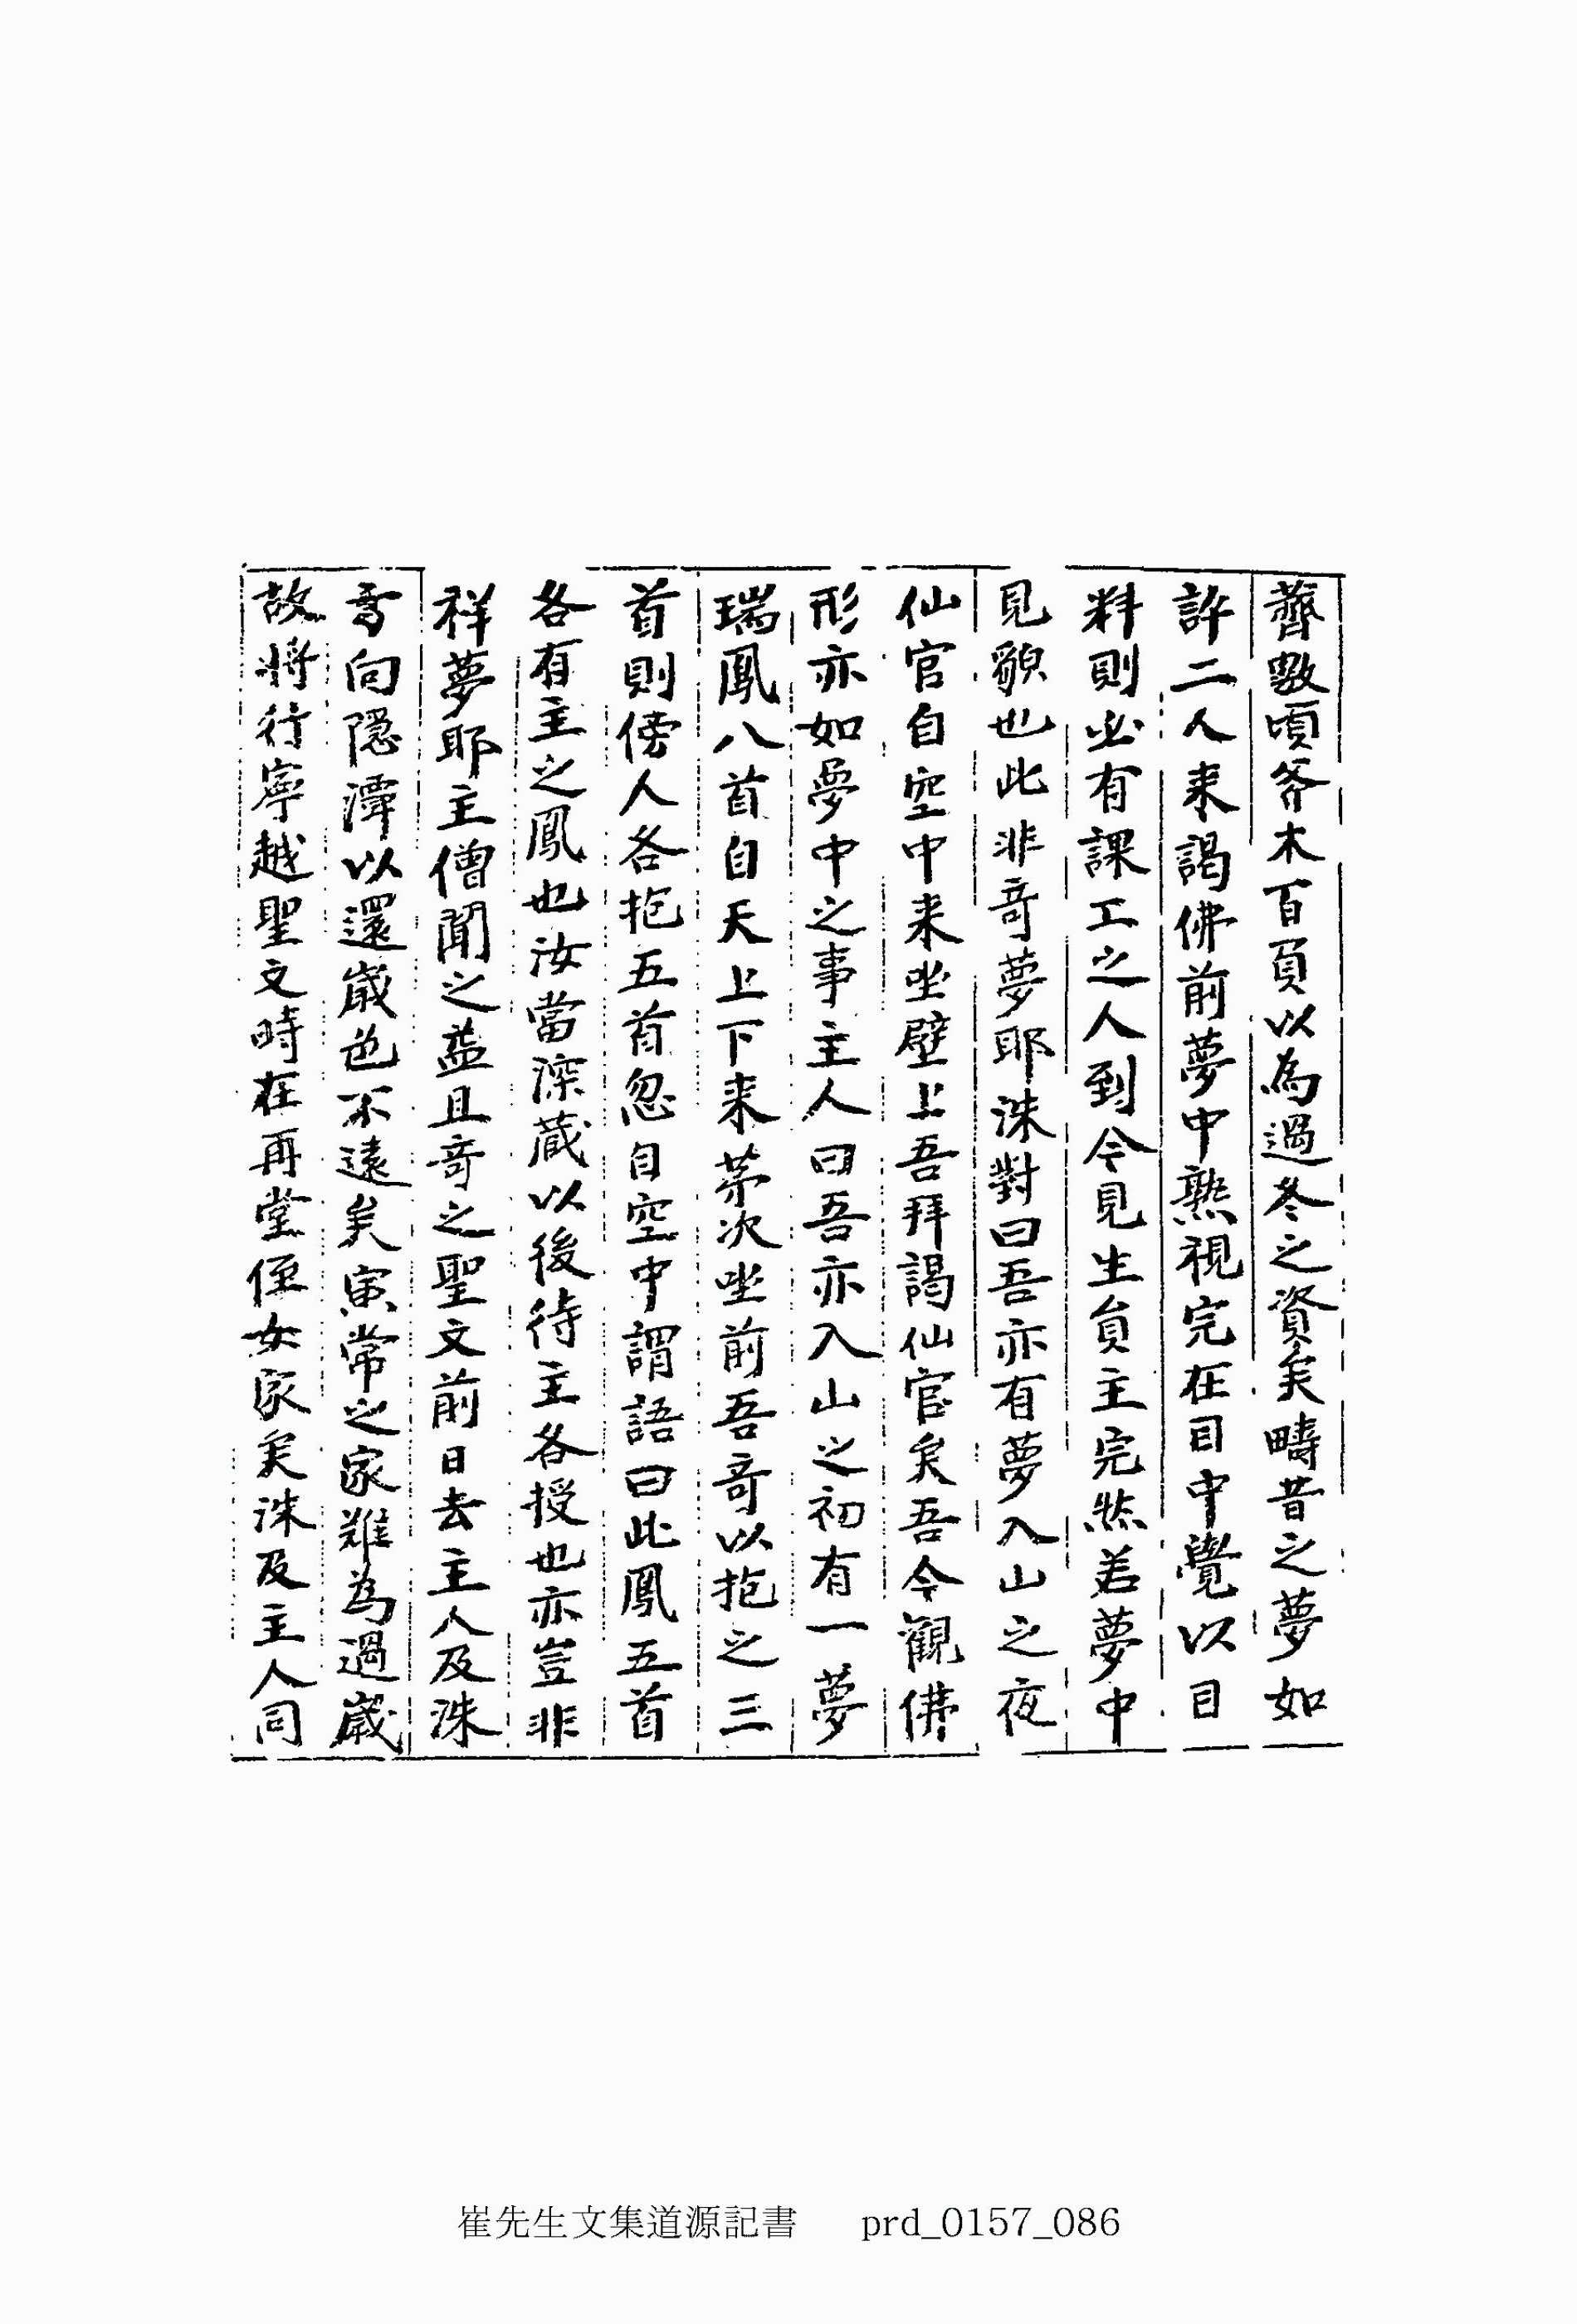 薺數頃斧木百負以為過冬之資矣疇昔之夢如
許二人来謁佛前夢中熟視完在目中覺以目
料則必有課工之人到今見生負主完然若夢中
見貌也此非奇夢耶洙對曰吾亦有夢入山之夜
仙官自空中来坐壁上吾拜謁仙官矣吾今觀佛
形亦如夢中之事主人曰吾亦入山之初有一夢
瑞鳳八首自天上下来茅次坐前吾奇以抱之三
首則傍人各抱五首忽自空中謂語曰此鳳五首
各有主之鳳也汝當深蔵以後待主各授也亦豈非
祥夢耶主僧聞之益且奇之聖文前日去主人及洙
向隱潭以還歳色不遠矣寅常之家難為過歳
故将行寧越聖文時在再堂侄女家矣洙及主人同
崔先生文集道源記書 prd_0157_086